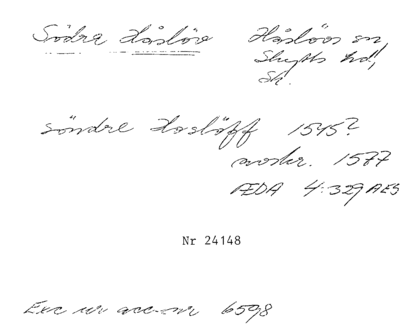 Södra Håslöv Håslövs sn
Skytts hd,
Sk.
söndre Hoslöff 1545?
avskr. 1577
ÆDA 4:329 AES
Nr 24148
Exc ur acc-nr 6598